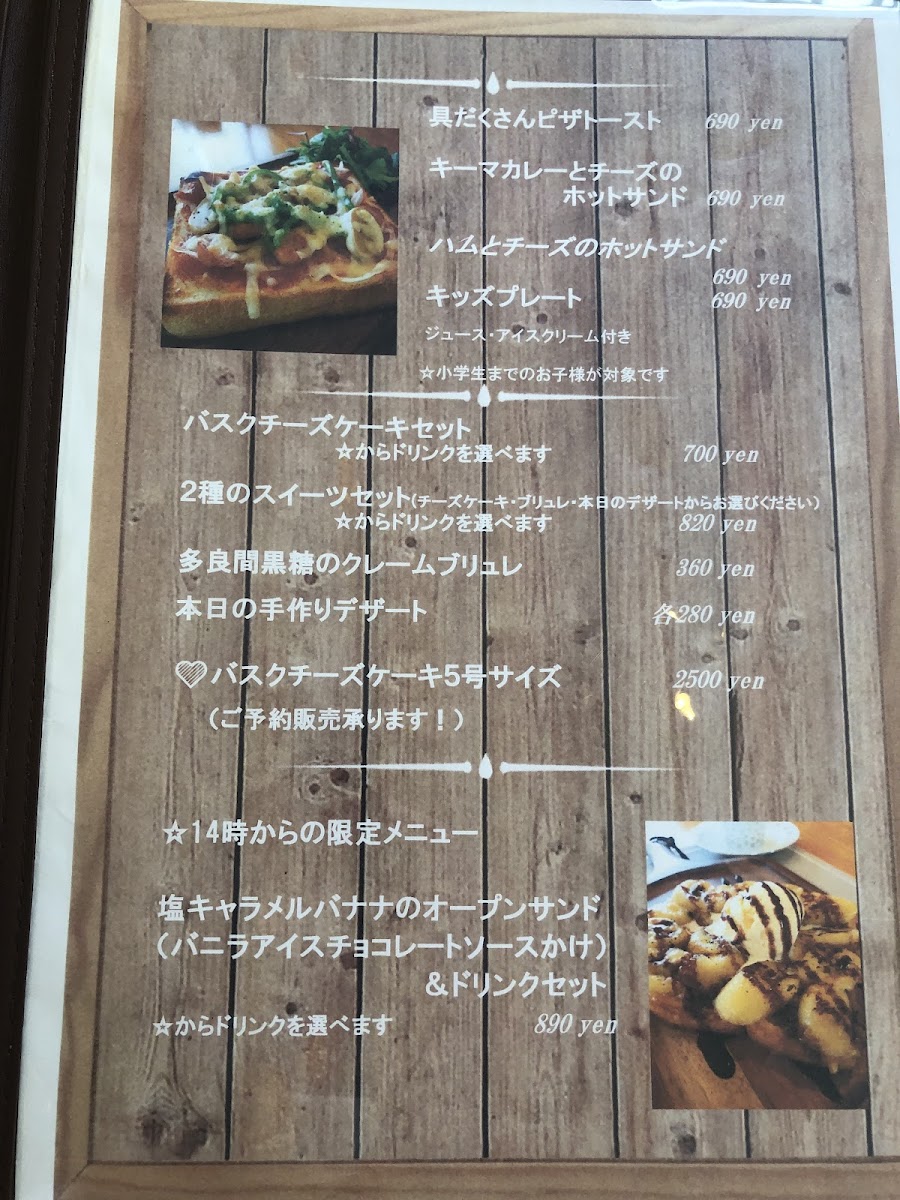 具だくさんピザトースト 690 yen
キーマカレーとチーズの
ホットサンド 690 yen
ハムとチーズのホットサンド
690 yen
キッズプレート 690 yen
ジュース・アイスクリーム付き
☆小学生までのお子様が対象です
バスクチーズケーキセット
☆からドリンクを選べます 700 yen
2種のスイーツセット(チーズケーキ・ブリュレ・本日のデザートからお選びください)
☆からドリンクを選べます 820 yen
多良間黒糖のクレームブリュレ 360 yen
本日の手作りデザート 各280 yen
♡バスクチーズケーキ5号サイズ 2500 yen
(ご予約販売承ります!)
☆14時からの限定メニュー
塩キャラメルバナナのオープンサンド
(バニラアイスチョコレートソースかけ)
&ドリンクセット
☆からドリンクを選べます 890 yen